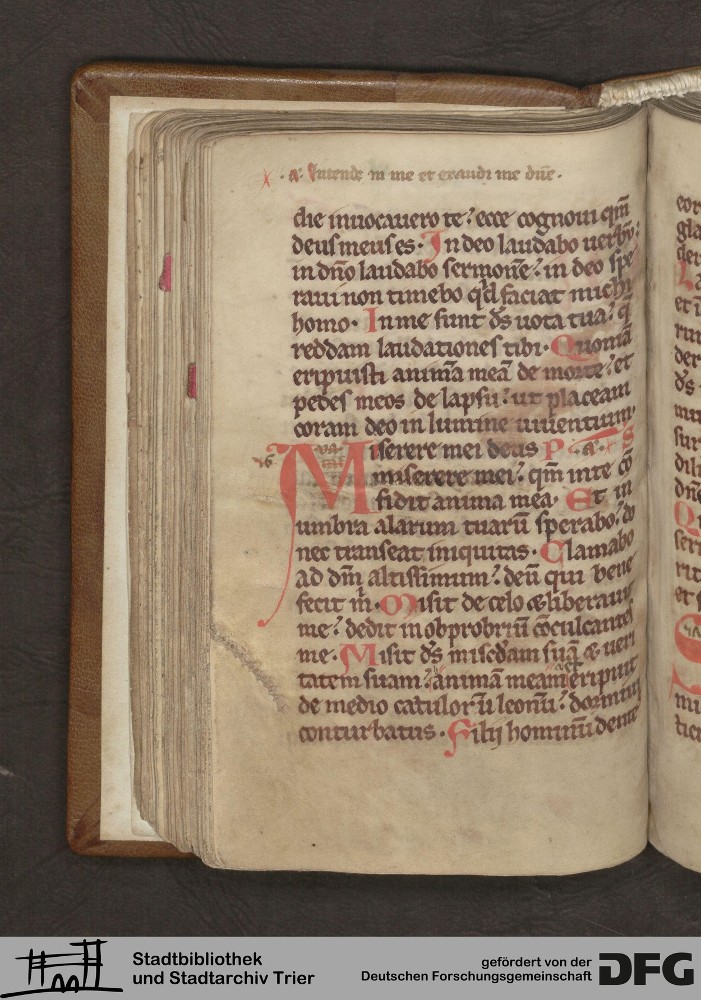 a͞. Intende in me et exaudi me dñe.
die inuocauero te? ecce cognoui qm̄
deus meus es. In deo laudabo uerbū?
in dño laudabo sermonē? in deo spe
raui non timebo qd̄ faciat michi
homo. In me sunt ds̄ uota tua? q̄
reddam laudationes tibi. Quoniā
eripuisti animā meā de morte? et
pedes meos de lapsu? ut placeam
coram deo in lumine uiuentium.
Miserere mei deus
miserere mei? qm̄ in te cō
fidit anima mea. Et in
umbra alarum tuarū sperabo? do
nec transeat iniquitas. Clamabo
ad dm̄ altissimum? deū qui bene
fecit m̄. Misit de celo & liberauit
me? dedit in obprobriū cōculcantes
me. Misit ds̄ miscdām suā & ueri
tatem suam? animā meam eripuit
de medio catulorū leonū? dormiui
conturbatus. Filij hominū dente
eor
gla
der
et i
rum
der
ds̄
mu
sur
dili
dñe
seri
rit
et s
mi
tier
Stadtbibliothek
und Stadtarchiv Trier
gefördert von der
Deutschen Forschungsgemeinschaft DFG